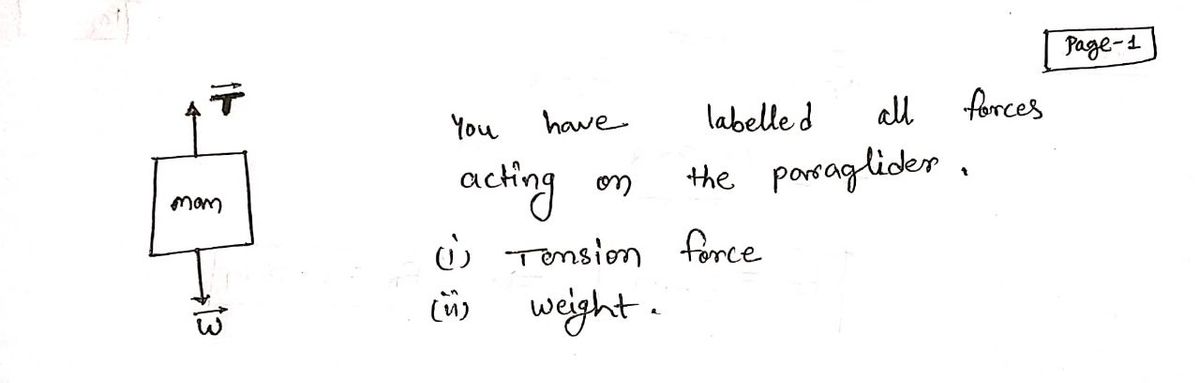 Page-1
T
You have labelled all forces
acting on the paraglider.
man
(i) Tension force
(ii) weight.
W